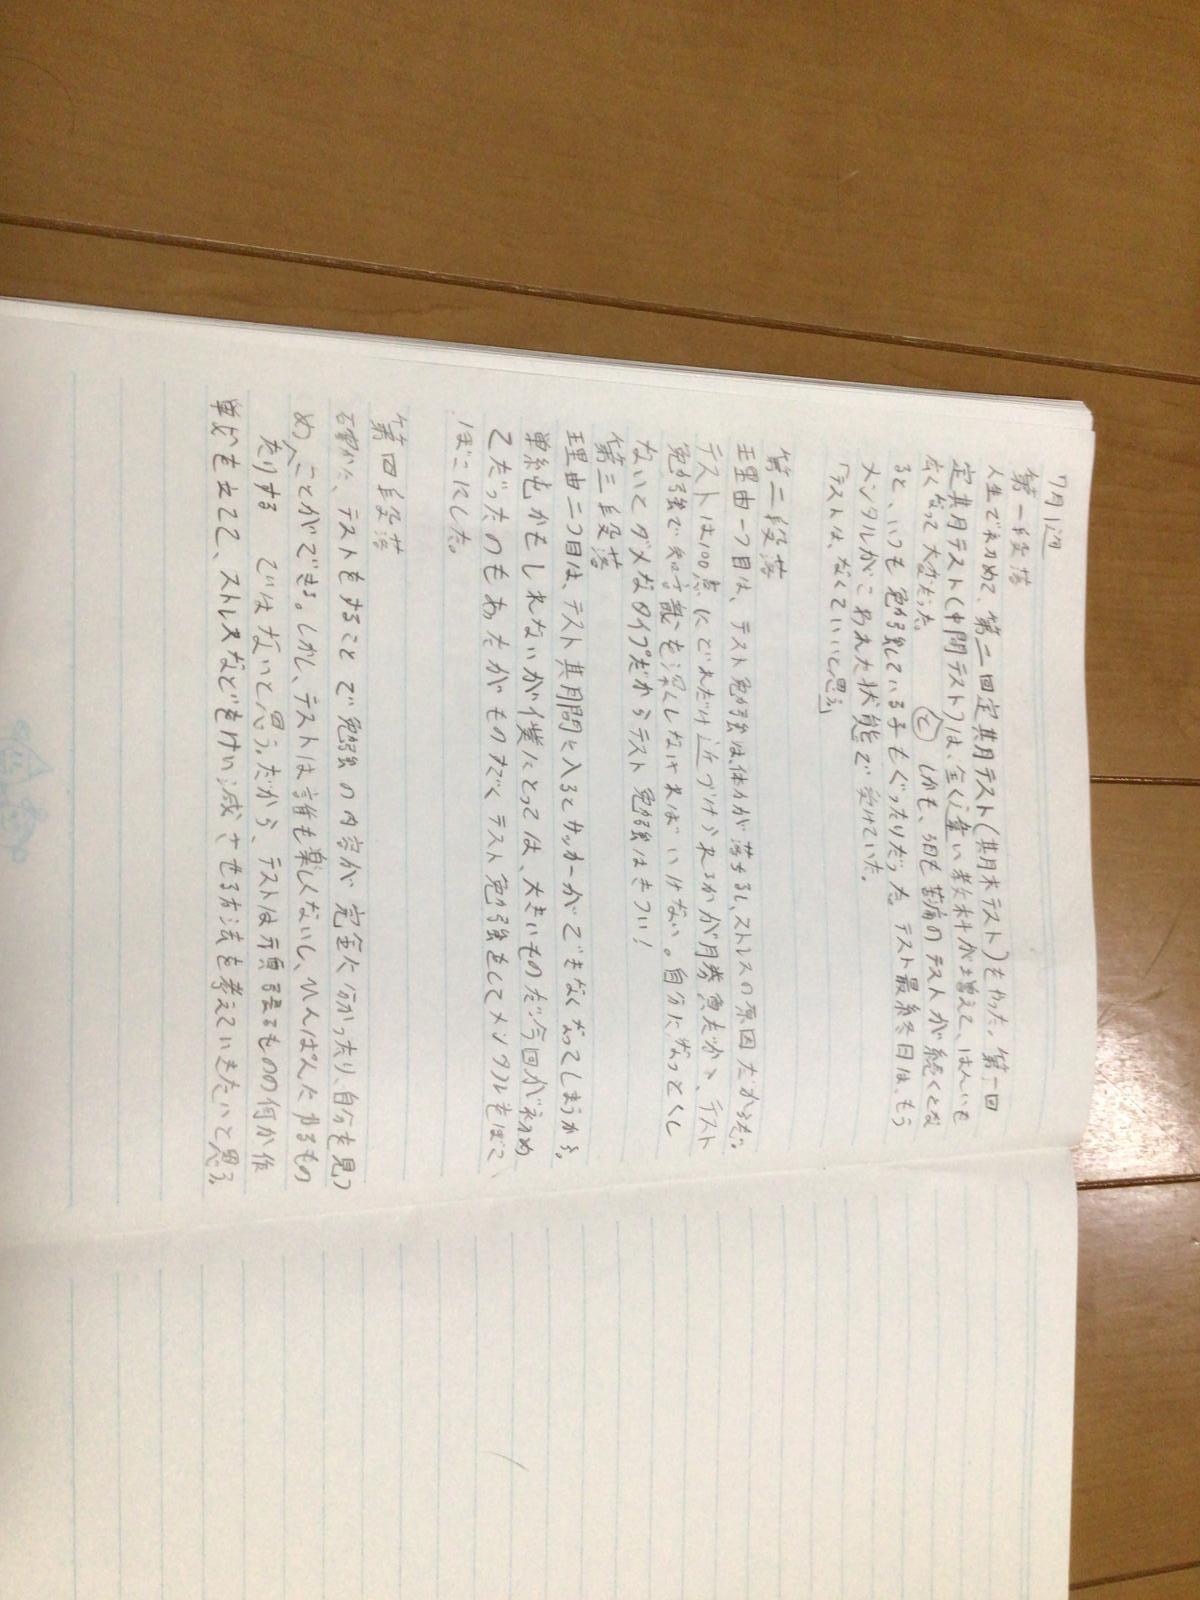 7月1週
第一段落
人生で初めて、第二回定期テスト(期末テスト)をやった。第一回
定期テスト(中間テスト)は、全く違い教科が増えて、はんいも
広くなって大変だった。 しかも、3日も苦痛のテストが続くとな
と
ると、いつも勉強している子もぐったりだった。テスト最終日は、もう
メンタルがこわれた状態で受けていた。
「テストは、なくていいと思う」
第二段落
理由一つ目は、テスト勉強は、体力が落ちるし、ストレスの原因だからだ。
テストは100点にどれだけ近づけられるかが勝負だから、テスト
勉強で知識を深くしなければいけない。自分になっとくし
ないとダメなタイプだからテスト勉強はきつい!
第三段落
理由二つ目は、テスト期間に入るとサッカーができなくなってしまうから。
単純かもしれないが僕にとっては、大きいものだ。今回が初め
てだったのもあったがものすごくテスト勉強をしてメンタルをぼこ
ぼこにした。
第四段落
確かに、テストをすることで勉強の内容が完全に分かったり、自分を見つ
めることができる。しかし、テストは誰も楽しくないし、ひんぱんにやるもの
たりする
ではないと思う。だから、テストは頑張るものの何か作
戦を立てて、ストレスなどをけい減させる方法を考えていきたいと思う。